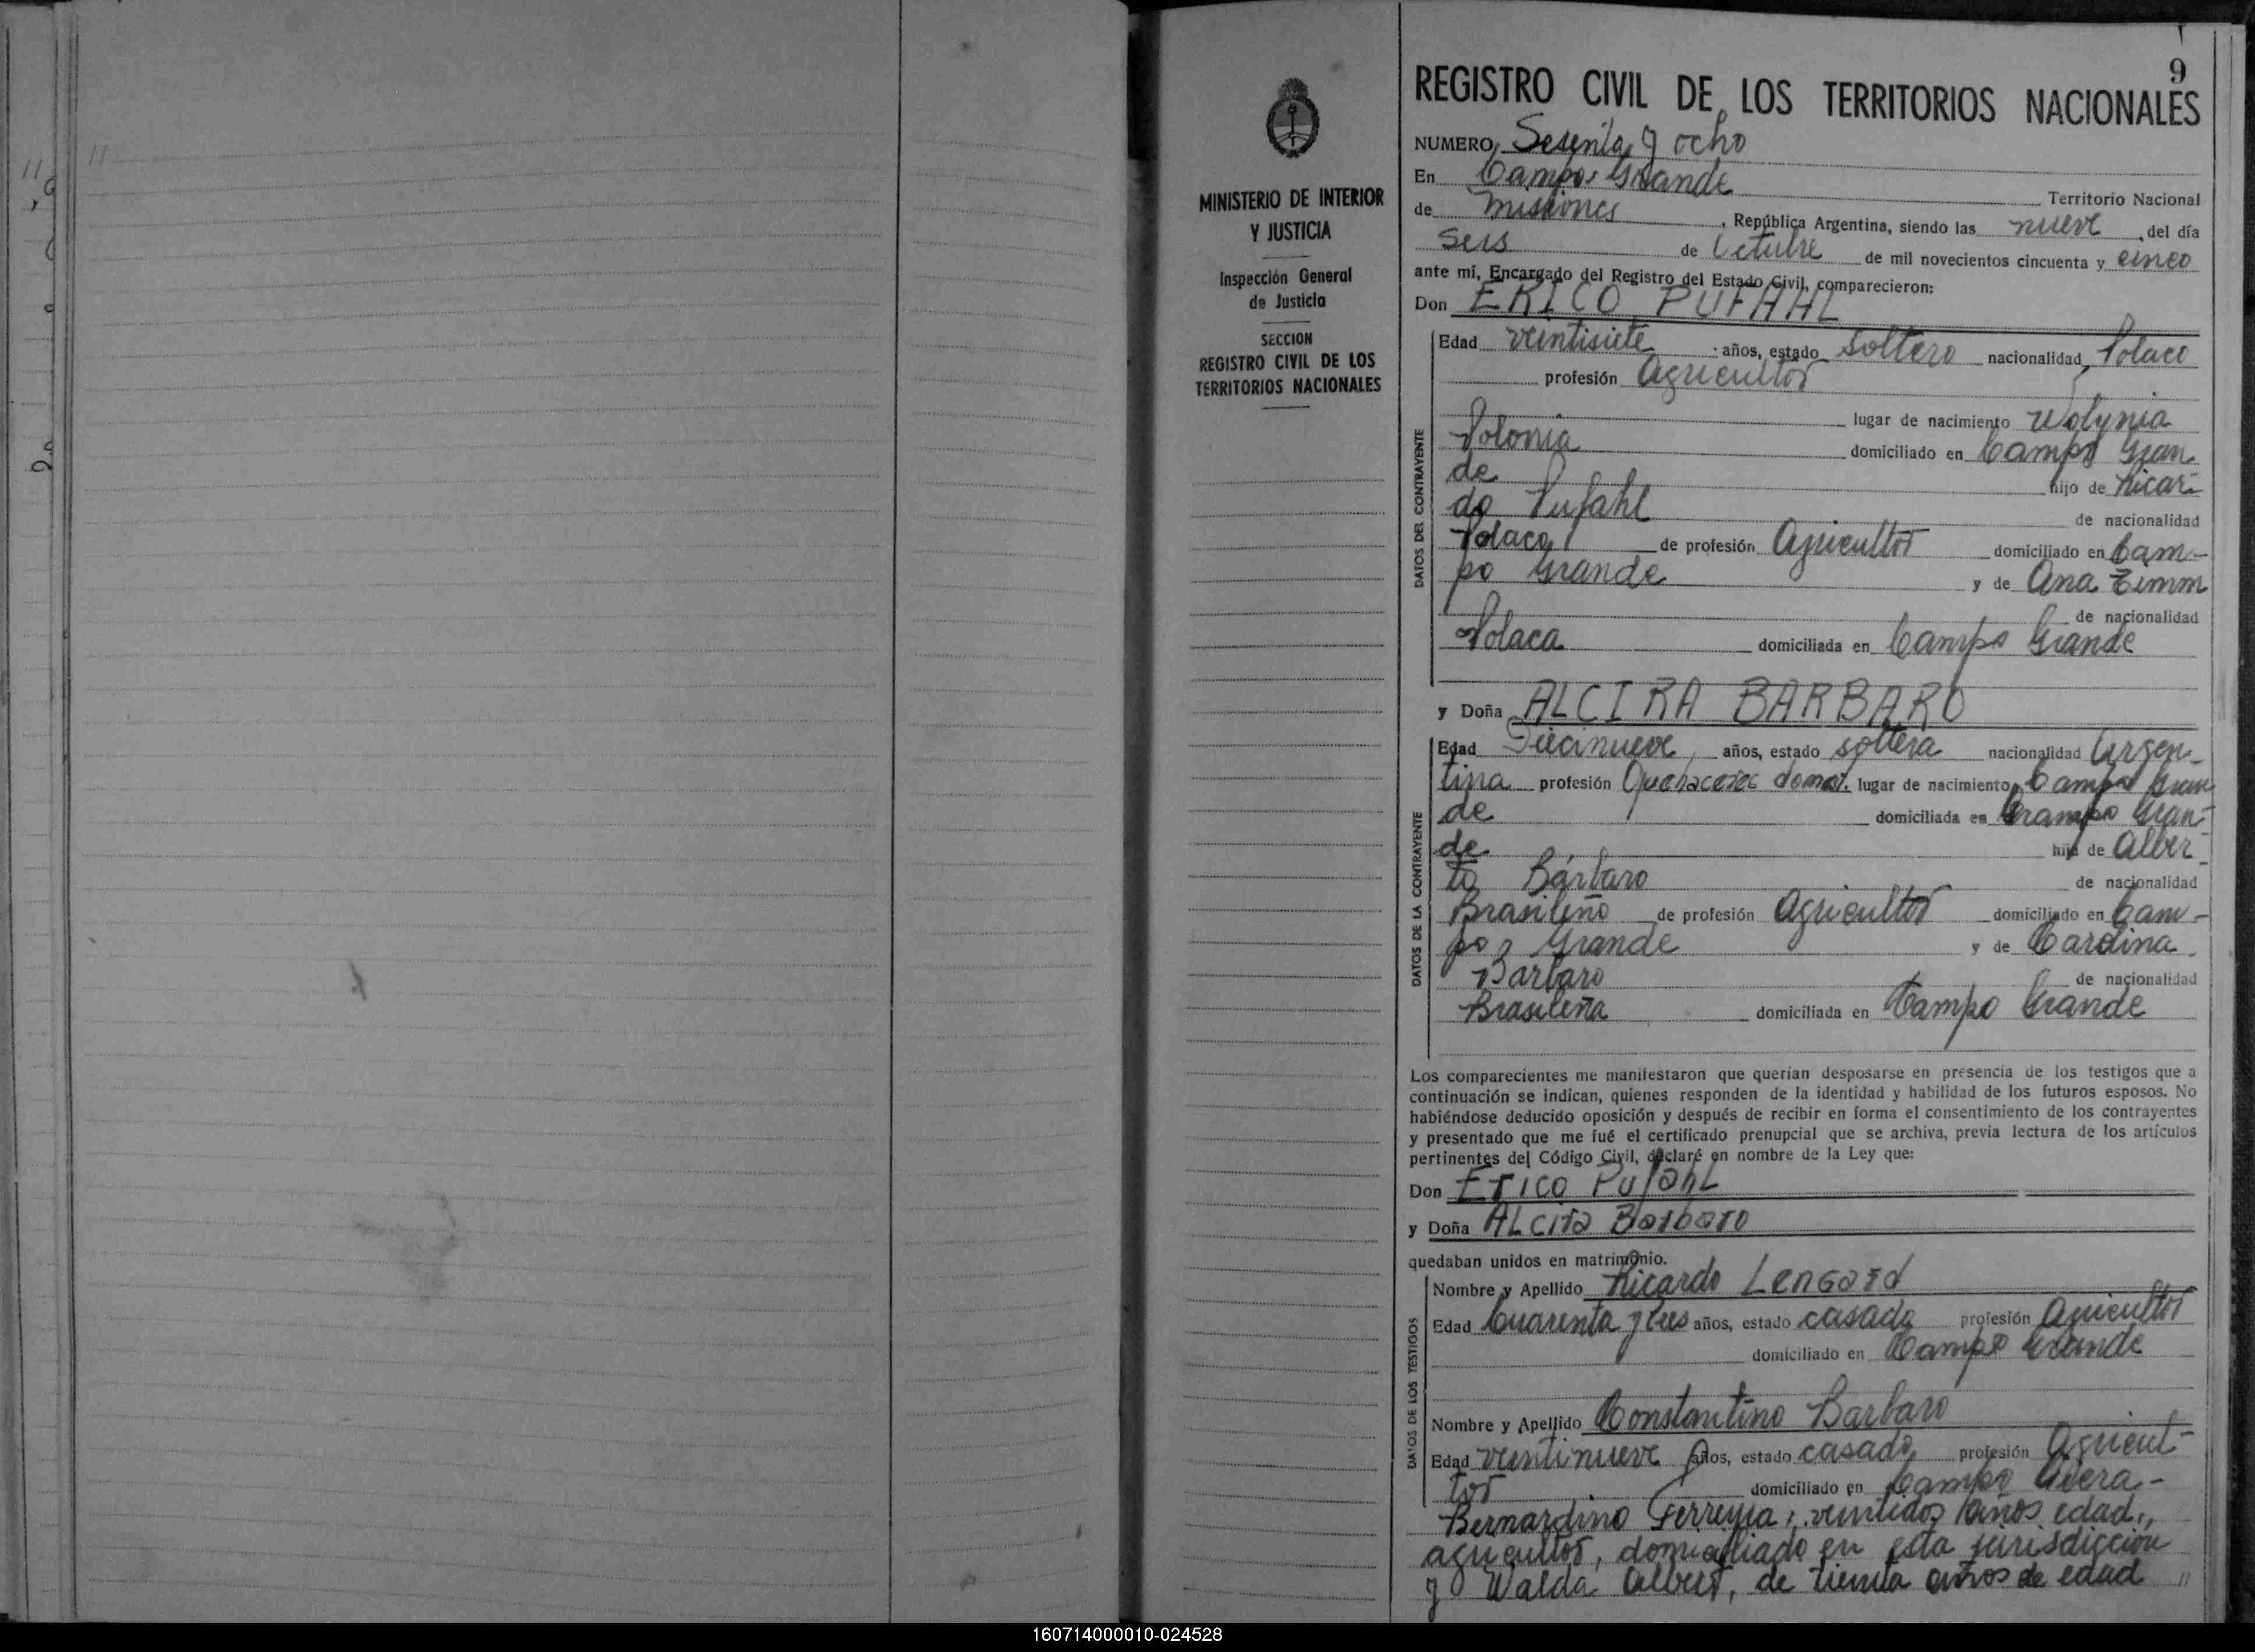 11
11
9
REGISTRO CIVIL DE LOS TERRITORIOS NACIONALES
MINISTERIO DE INTERIOR
Y JUSTICIA
Inspección General
de Justicia
SECCION
REGISTRO CIVIL DE LOS
TERRITORIOS NACIONALES
NUMERO Sesenta y ocho
En Campo Grande Territorio Nacional
de Misiones, República Argentina, siendo las nueve del día
seis de Octubre de mil novecientos cincuenta y cinco
ante mí, Encargado del Registro del Estado Civil, comparecieron:
Don ERICO PUFAHL
DATOS DEL CONTRAYENTE
Edad veintisiete años, estado soltero nacionalidad Polaco
profesión Agricultor
lugar de nacimiento Wolynia
Polonia domiciliado en Campo Gran
de hijo de Ricar-
do Pufahl de nacionalidad
Polaco de profesión Agricultor domiciliado en Cam-
po Grande y de Ana Zimm
de nacionalidad
Polaca domiciliada en Campo Grande
y Doña ALCIRA BARBARO
DATOS DE LA CONTRAYENTE
Edad Diecinueve, años, estado soltera nacionalidad Argen-
tina profesión Quehaceres domest. lugar de nacimiento Campo Gran
de domiciliada en Campo Gran-
de hija de Alber-
to Bárbaro de nacionalidad
Brasileño de profesión Agricultor domiciliado en Cam-
po Grande y de Carolina
Barbaro de nacionalidad
Brasileña domiciliada en Campo Grande
Los comparecientes me manifestaron que querían desposarse en presencia de los testigos que a
continuación se indican, quienes responden de la identidad y habilidad de los futuros esposos. No
habiéndose deducido oposición y después de recibir en forma el consentimiento de los contrayentes
y presentado que me fué el certificado prenupcial que se archiva, previa lectura de los artículos
pertinentes del Código Civil, declaré en nombre de la Ley que:
Don Erico Pufahl
y Doña ALcira Barbaro
quedaban unidos en matrimonio.
DATOS DE LOS TESTIGOS
Nombre y Apellido Ricardo Lengard
Edad Cuarenta y tres años, estado casado profesión Agricultor
domiciliado en Campo Grande
Nombre y Apellido Constantino Barbaro
Edad veintinueve años, estado casado profesión Agricul-
tor domiciliado en Campo Viera-
Bernardino Ferreyra, veintidos años edad,
agricultor, domiciliado en esta jurisdicción
y Walda Albert, de treinta años de edad "
160714000010-024528